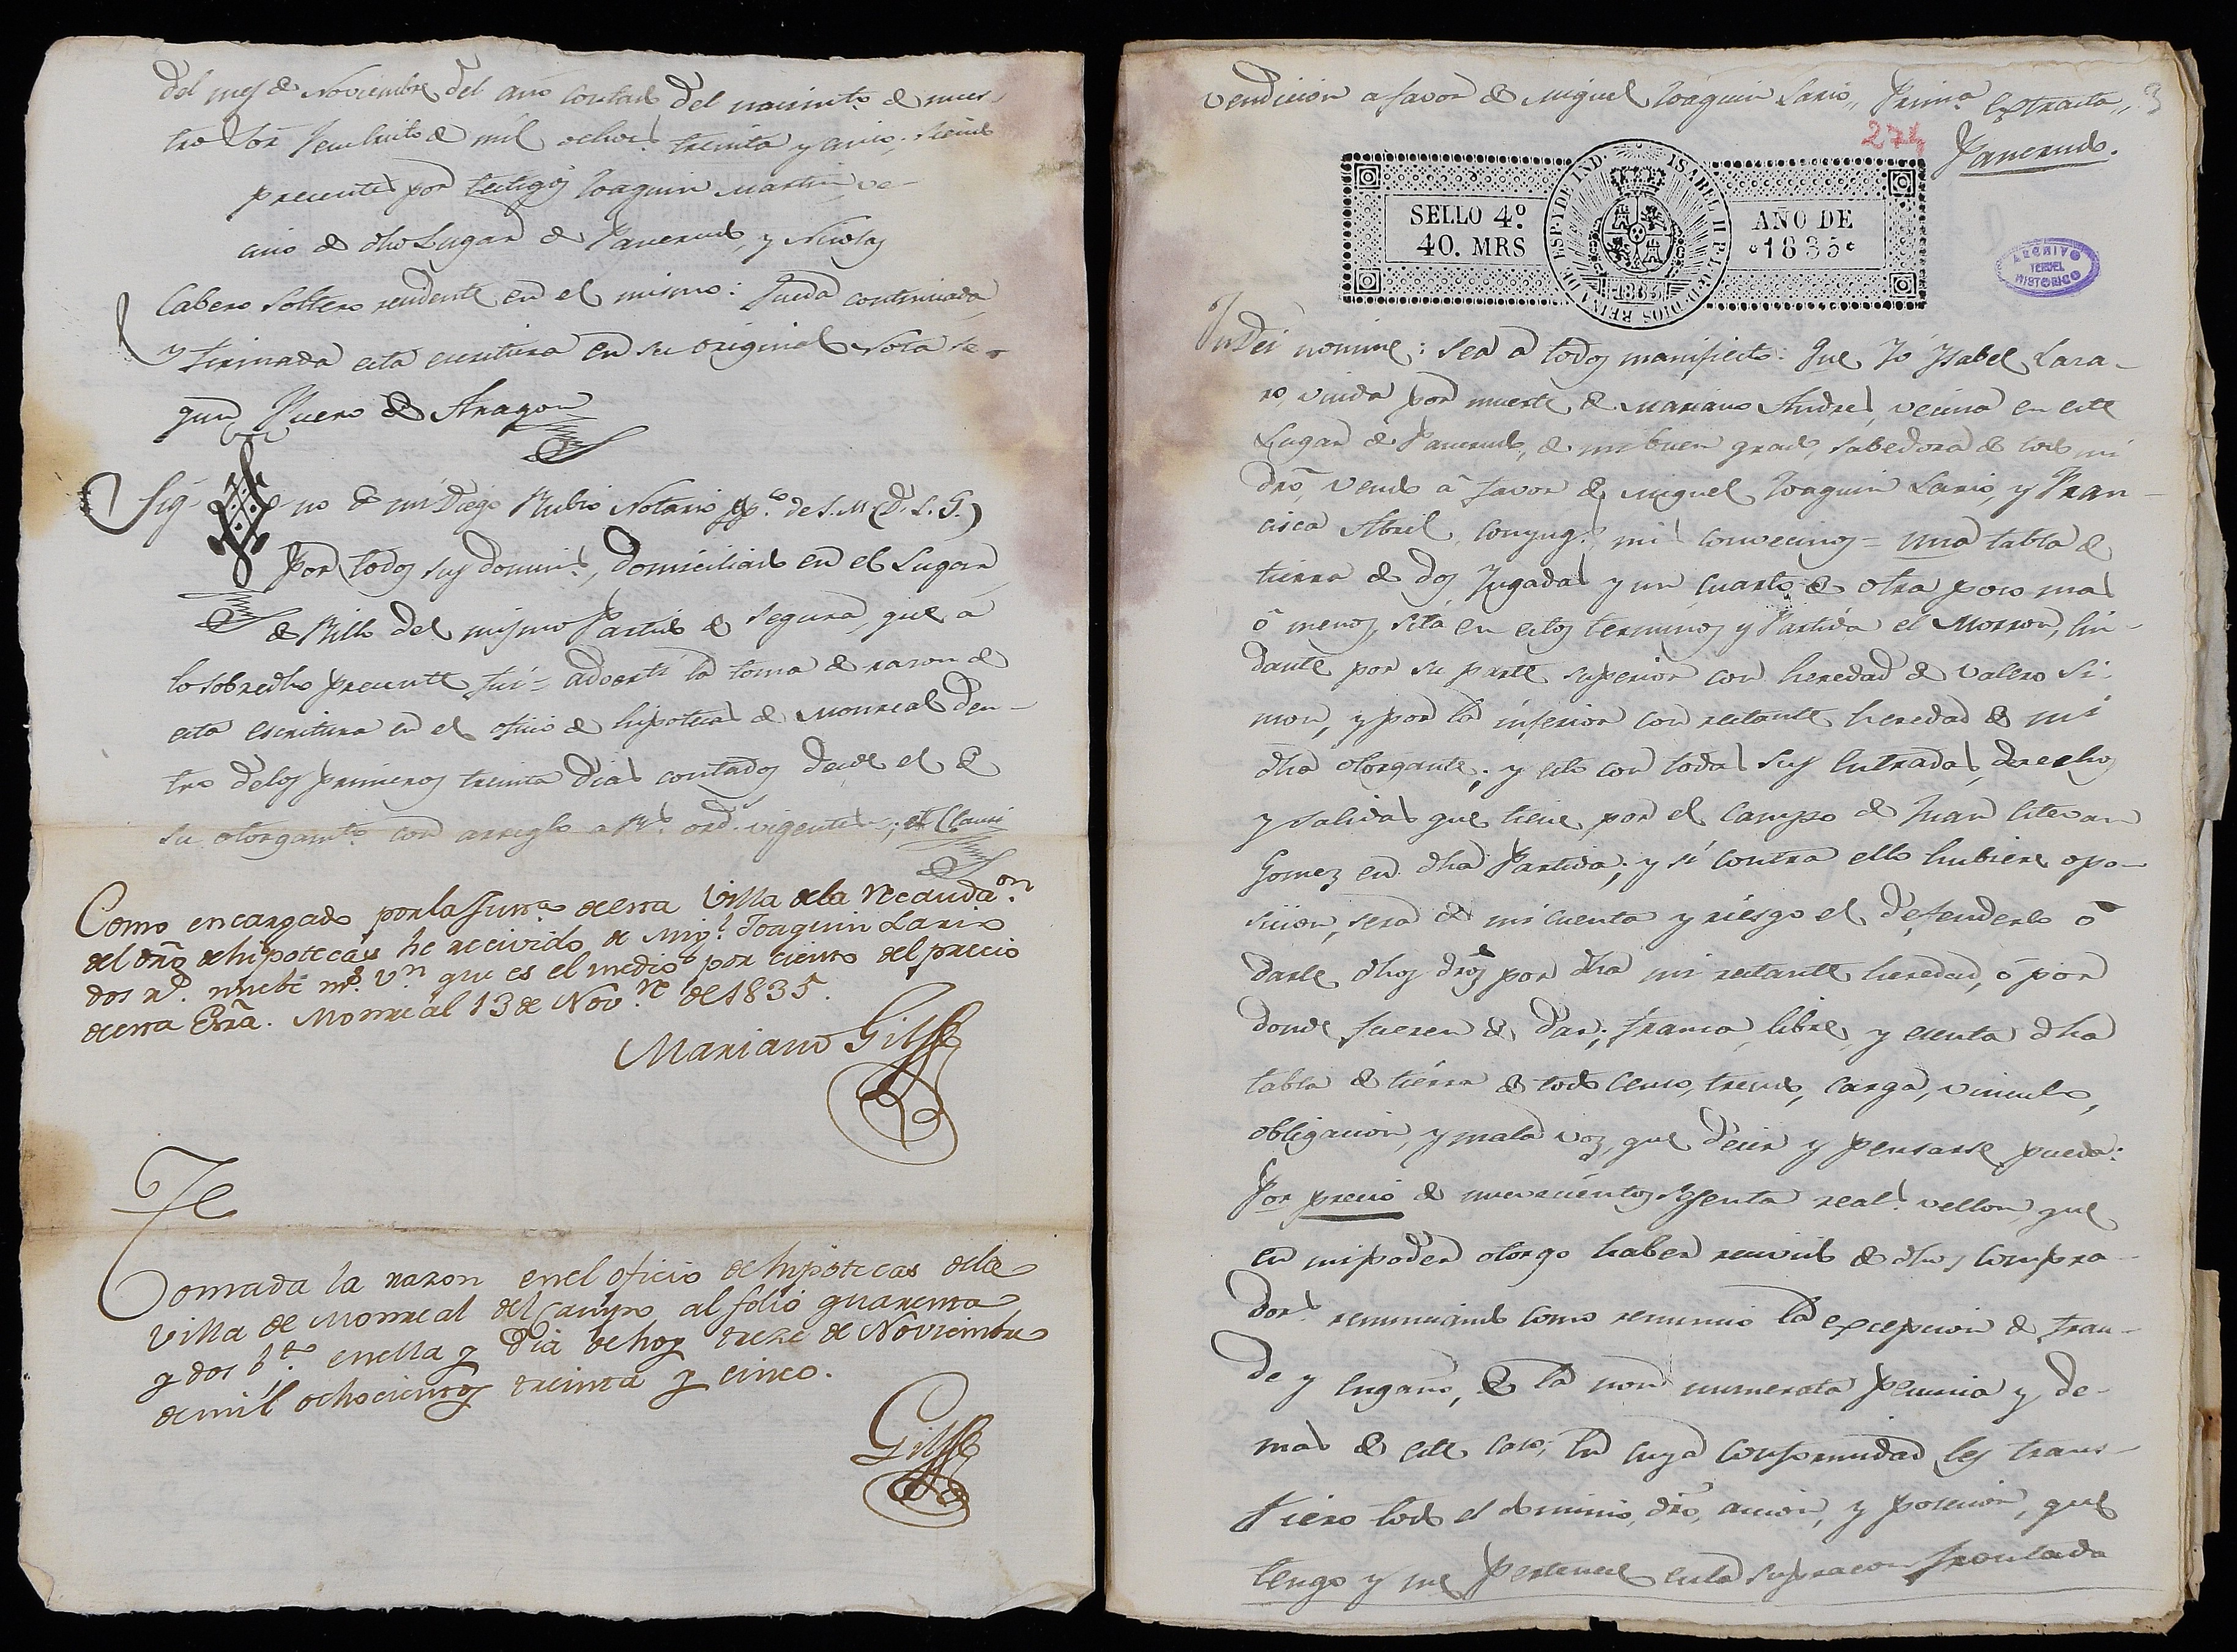 del mes de Noviembre del año contado del nacimto. de nues-
tro Sor. Jesuchristo de mil ochocs. treinta y cinco; siendo
presentes por testigos Joaquin Martin ve-
cino de dho Lugar de Pancrudo, y Nicolas
Cabero soltero residente en el mismo: Queda continuada,
y firmada esta escritura en su original Nota se-
gun Fuero de Aragon
Sig-no de mi Diego Rubio Notario ppco. de S. M. (D. L. G.)
Por todos sus dominios, domiciliado en el Lugar
de Rillo del mismo Partido de Segura, que a
lo sobredho presente fui = advertí la toma de razon de
esta escritura en el oficio de hipotecas de Monreal den-
tro de los primeros treinta dias contados desde el de
su otorgamto. con arreglo a Rs. ords. vigentes; et Clausi
Como encargado por la Junta. de esta Villa de la Recaudaon.
del dro de hipotecas he recivido de Migl. Joaquin Lario
dos rs. nuebe ms. vn. que es el medio por ciento del precio
de esta Esra. Monreal 13 de Novre. de 1835.
Mariano Gil
Tomada la razon en el oficio de hipotecas de la
Villa de Monreal del Campo al folio quarenta
y dos bto. en ella y Dia de hoy trece de Noviembre
de mil ochocientos treinta y cinco.
Gil
Vendicion a favor de Miguel Joaquin Lario,, Prima. Extracta,,
274
Pancrudo.
SELLO 4.º
40. MRS
ISABEL II P. L. G. D. DIOS REINA DE ESP. Y DE IND.
1835
AÑO DE
1835
ARCHIVO
TERUEL
HISTORICO
In Dei nomine: sea a todos manifiesto: Que Yo Ysabel Laza-
ro, viuda por muerte de Mariano Andres, vecina en este
Lugar de Pancrudo, de mi buen grado, sabedora de todo mi
dro, vendo á favor de Miguel Joaquin Lario, y Fran-
cisca Abril, conyugs. mis convecinos = una tabla de
tierra de dos Jugadas y un cuarto de otra poco mas
ó menos, sita en estos terminos y Partida el Morron, lin-
dante por su parte superior con heredad de Valero Si-
mon, y por la inferior con restante heredad de mi
dha otorgante; y esto con todas sus entradas, derechos
y salidas que tiene por el campo de Juan Estevan
Gomez en dha Partida; y si contra ello hubiere opo-
sicion, será de mi cuenta y riesgo el defenderlo ó
darle dhos dros por dha mi restante heredad, ó por
donde fueren de dar; franca, libre, y esenta dha
tabla de tierra de todo censo, treudo, carga, vinculo,
obligacion, y mala voz, que decir y pensarse pueda:
Por precio de nuevecientos sesenta reals. vellon, que
en mi poder otorgo haber recivido de dhos compra-
dors. renunciando como renuncio la excepcion de frau-
de y engaño, de la non numerata pecunia y de-
mas de este caso; En cuya conformidad les trans-
fiero todo el dominio, dro, accion, y posesion, que
tengo y me pertenece en la supraconfrontada